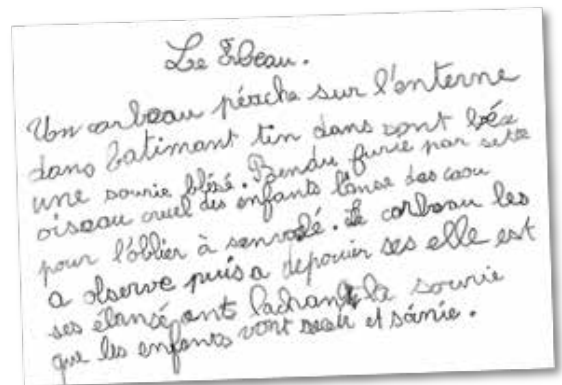 Le Erbeau.
Un corbeau pérche sur l'enterne
dans batimant tin dans sont béx
une sourie blésé. Rendu furie par sette
oiseau cruel des enfants lanse des caou
pour l'oblier à sanvolé. Le corbeau les
a observe puis a déponier ses elle est
ses élancé ant lachant la sourie
que les enfants vont et sánie.